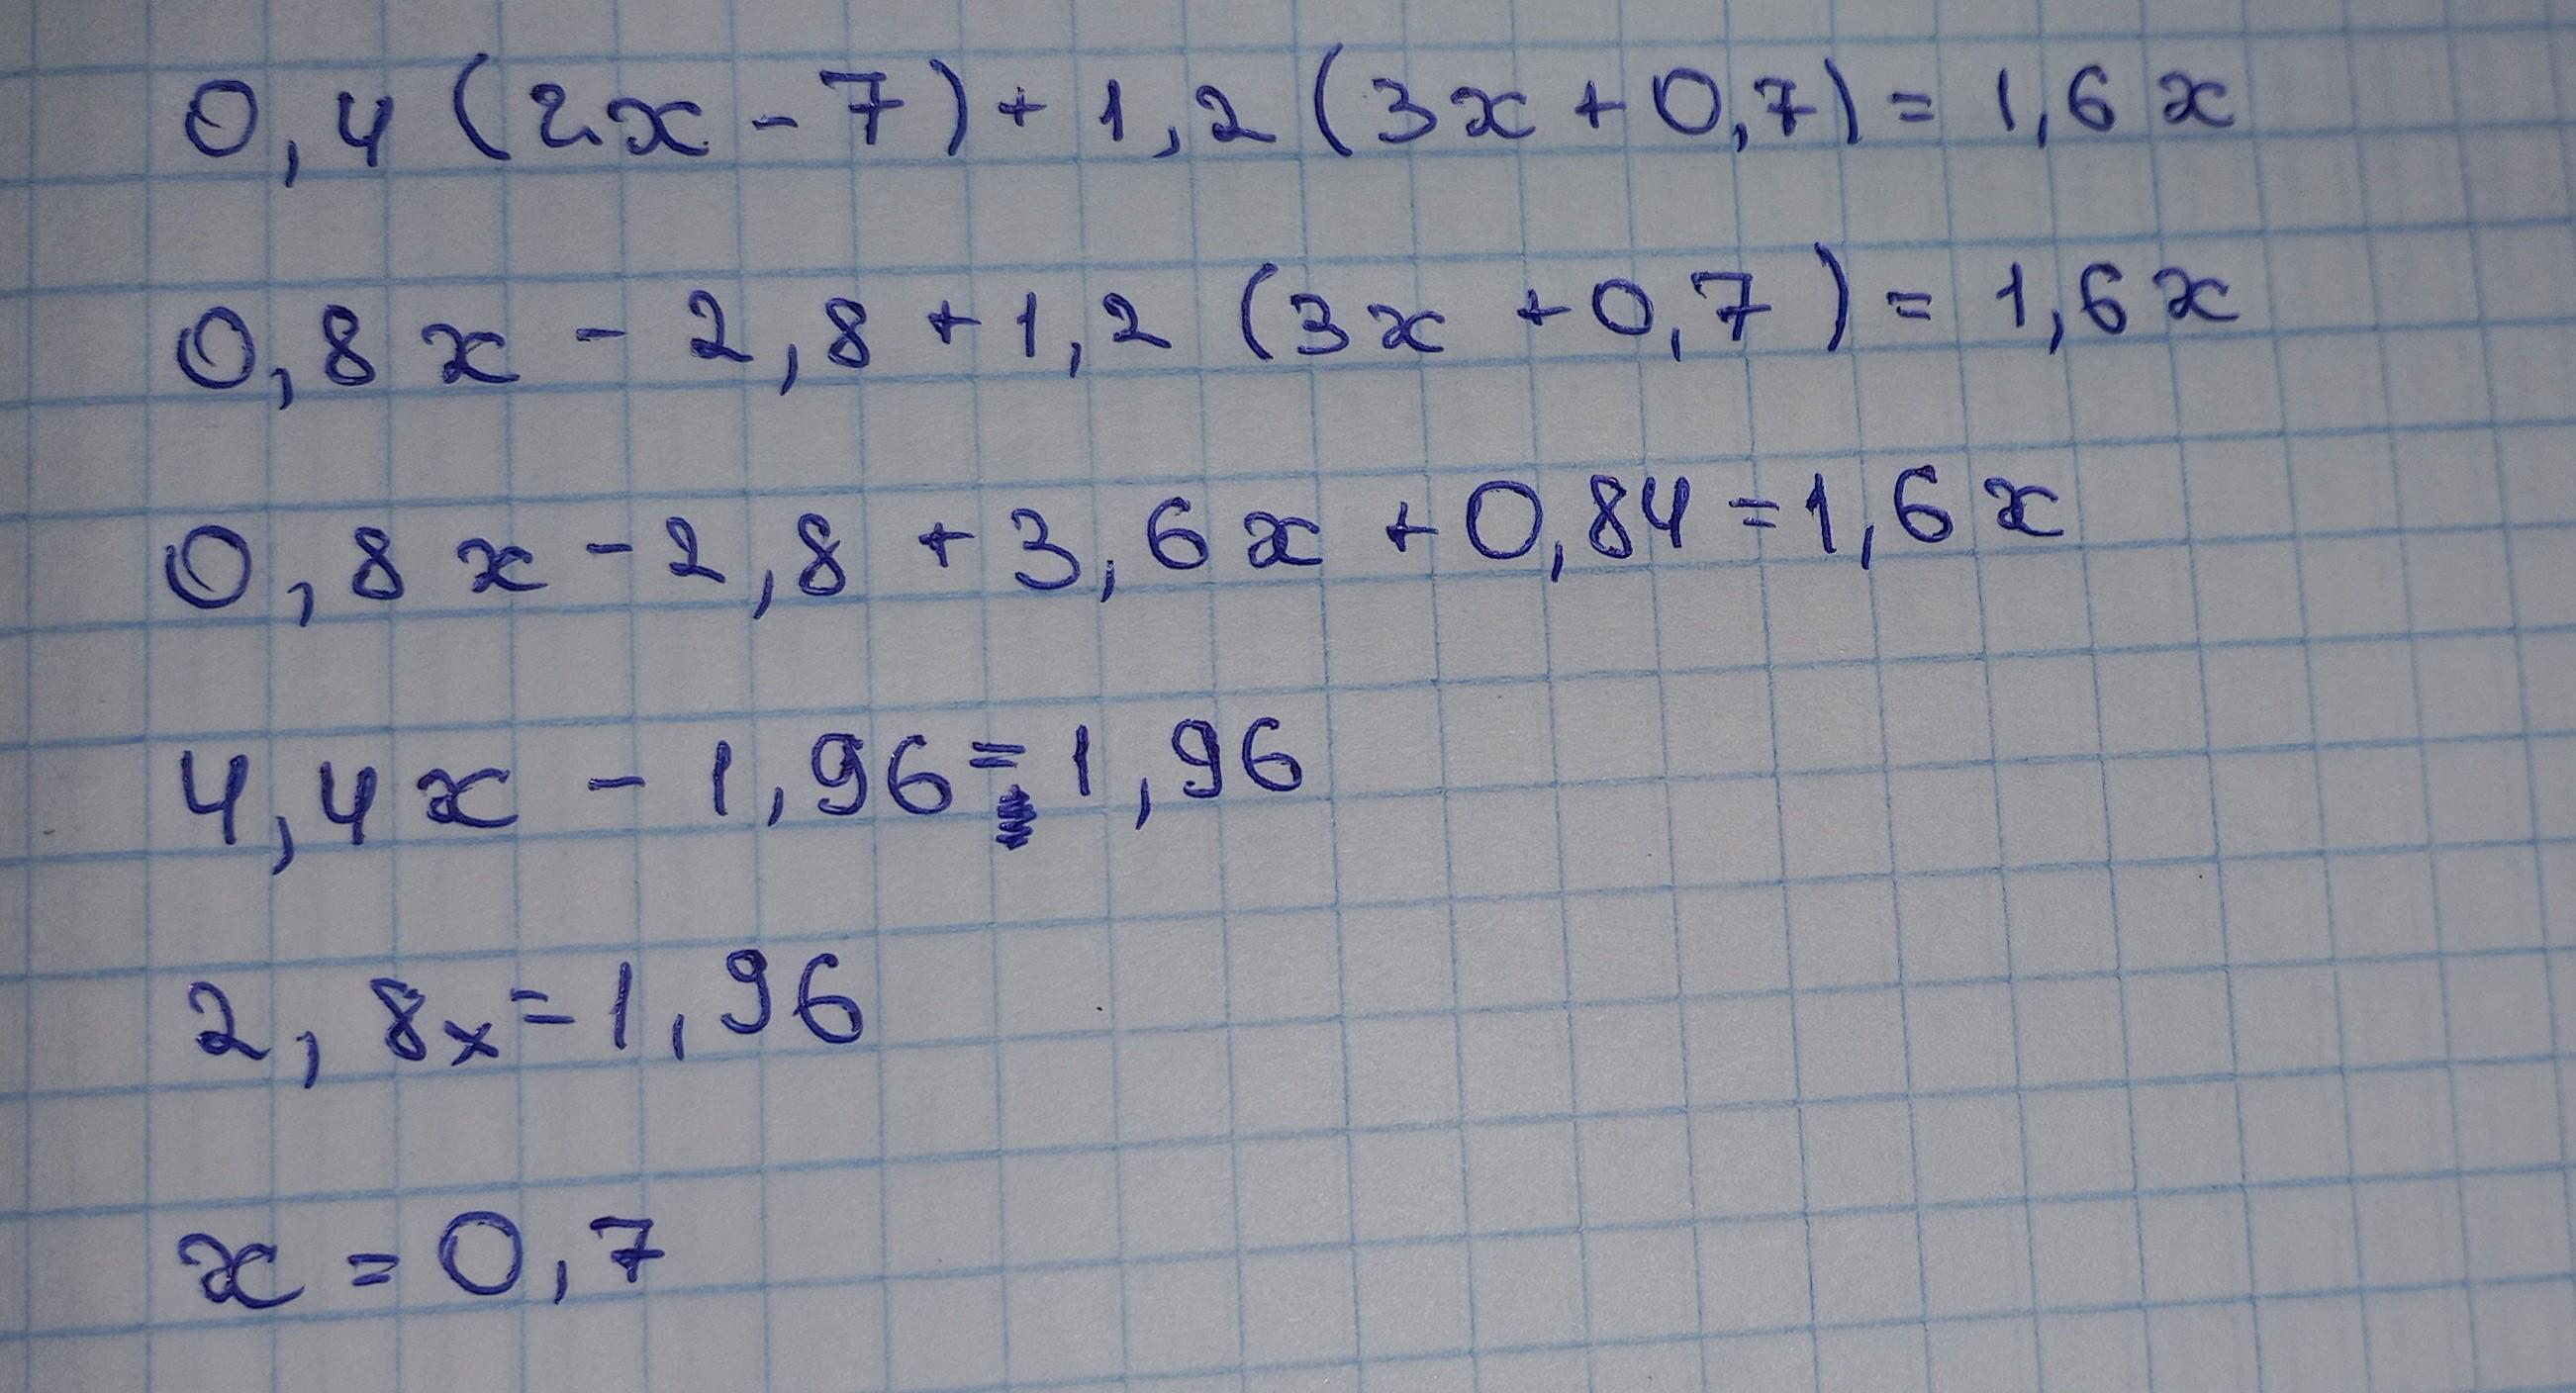 0,4 (2x - 7) + 1,2 (3x + 0,7) = 1,6 x
0,8 x - 2,8 + 1,2 (3x + 0,7) = 1,6 x
0,8 x - 2,8 + 3,6 x + 0,84 = 1,6 x
4,4 x - 1,96 = 1,96
2,8x = 1,96
x = 0,7